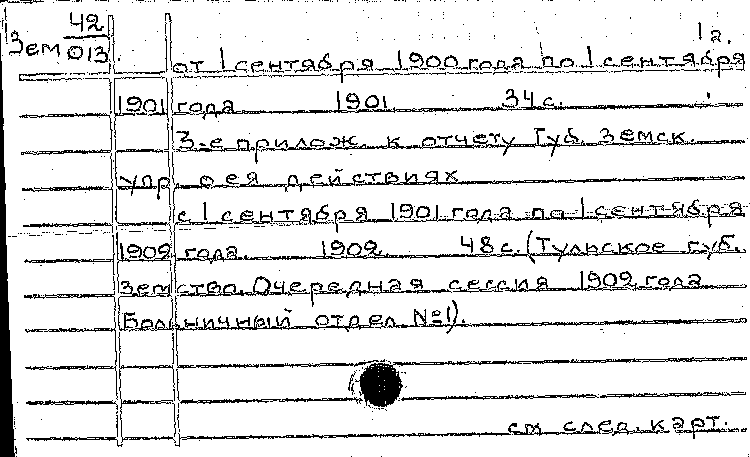 Зем 42/013
1 а.
от 1 сентября 1900 года по 1 сентября
1901 года 1901 34 с.
3-е прилож к отчету Губ. земск.
упр о ея действиях
с 1 сентября 1901 года по 1 сентября
1902 года. 1902. 48 с. (Тульское губ.
земство. Очередная сессия 1902 года
Больничный отдел №1).
см след. карт.